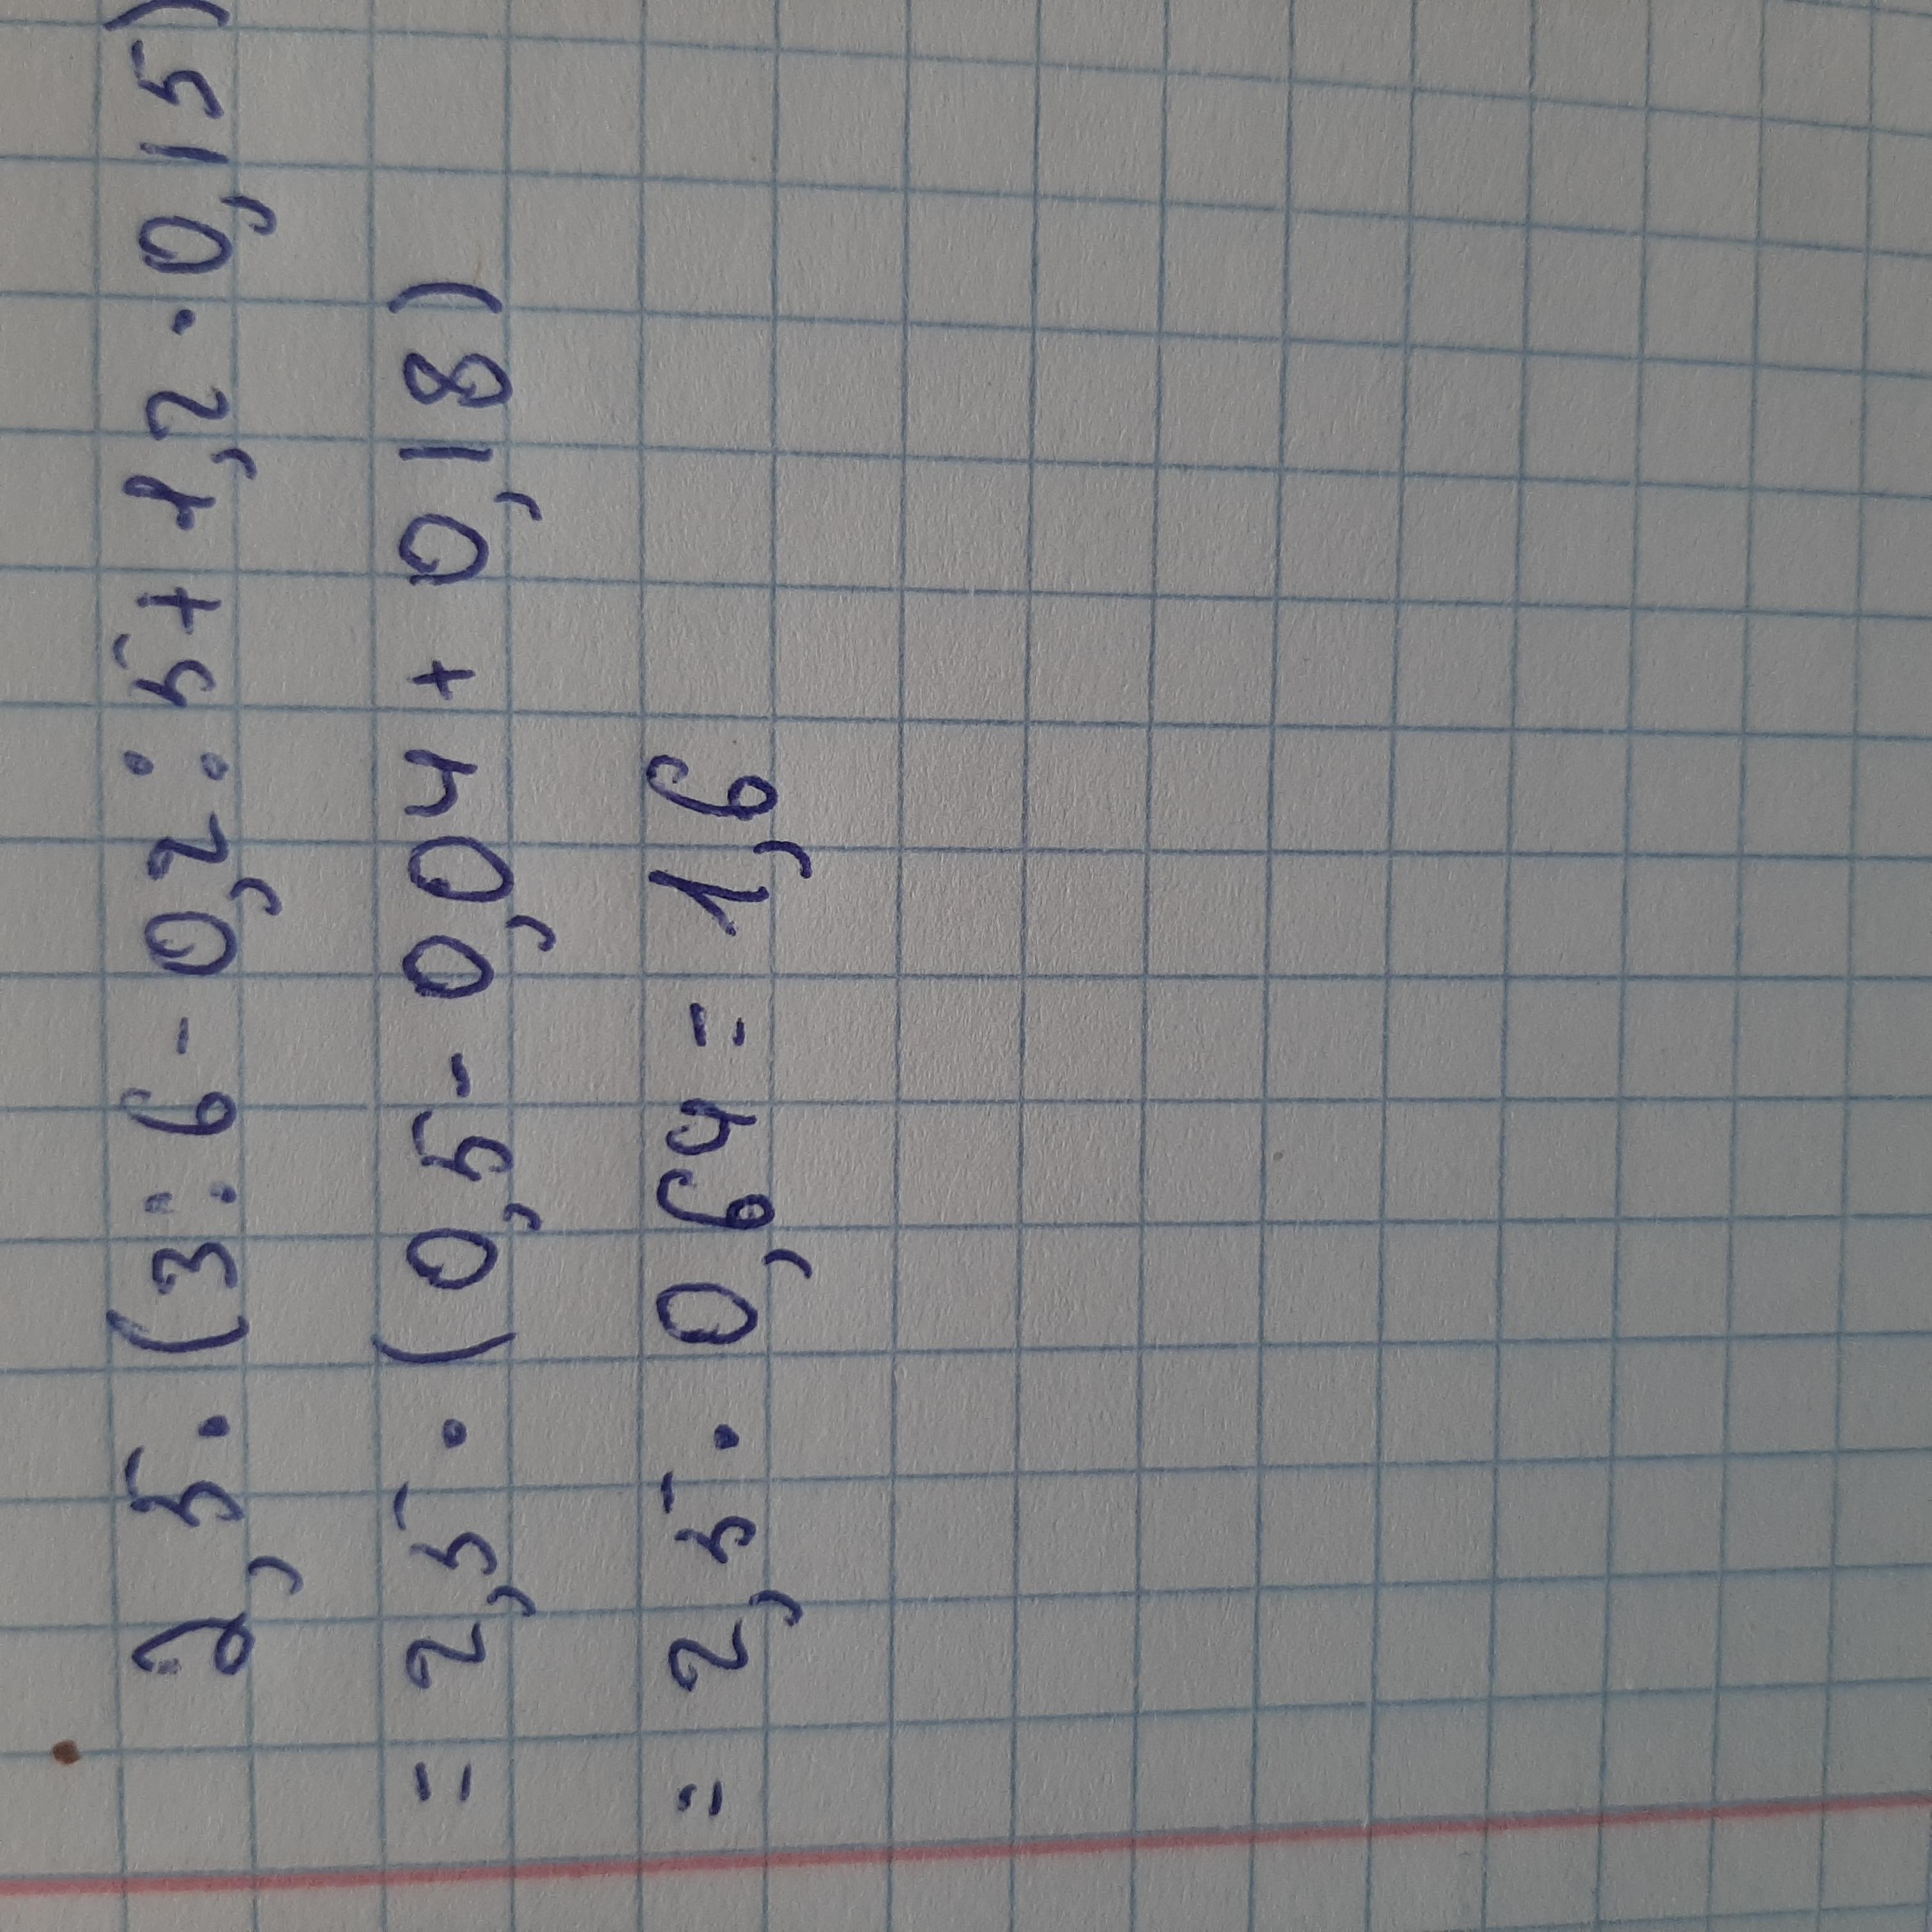 2,5 · (3 : 6 - 0,2 : 5 + 1,2 · 0,15)
= 2,5 · (0,5 - 0,04 + 0,18)
= 2,5 · 0,64 = 1,6